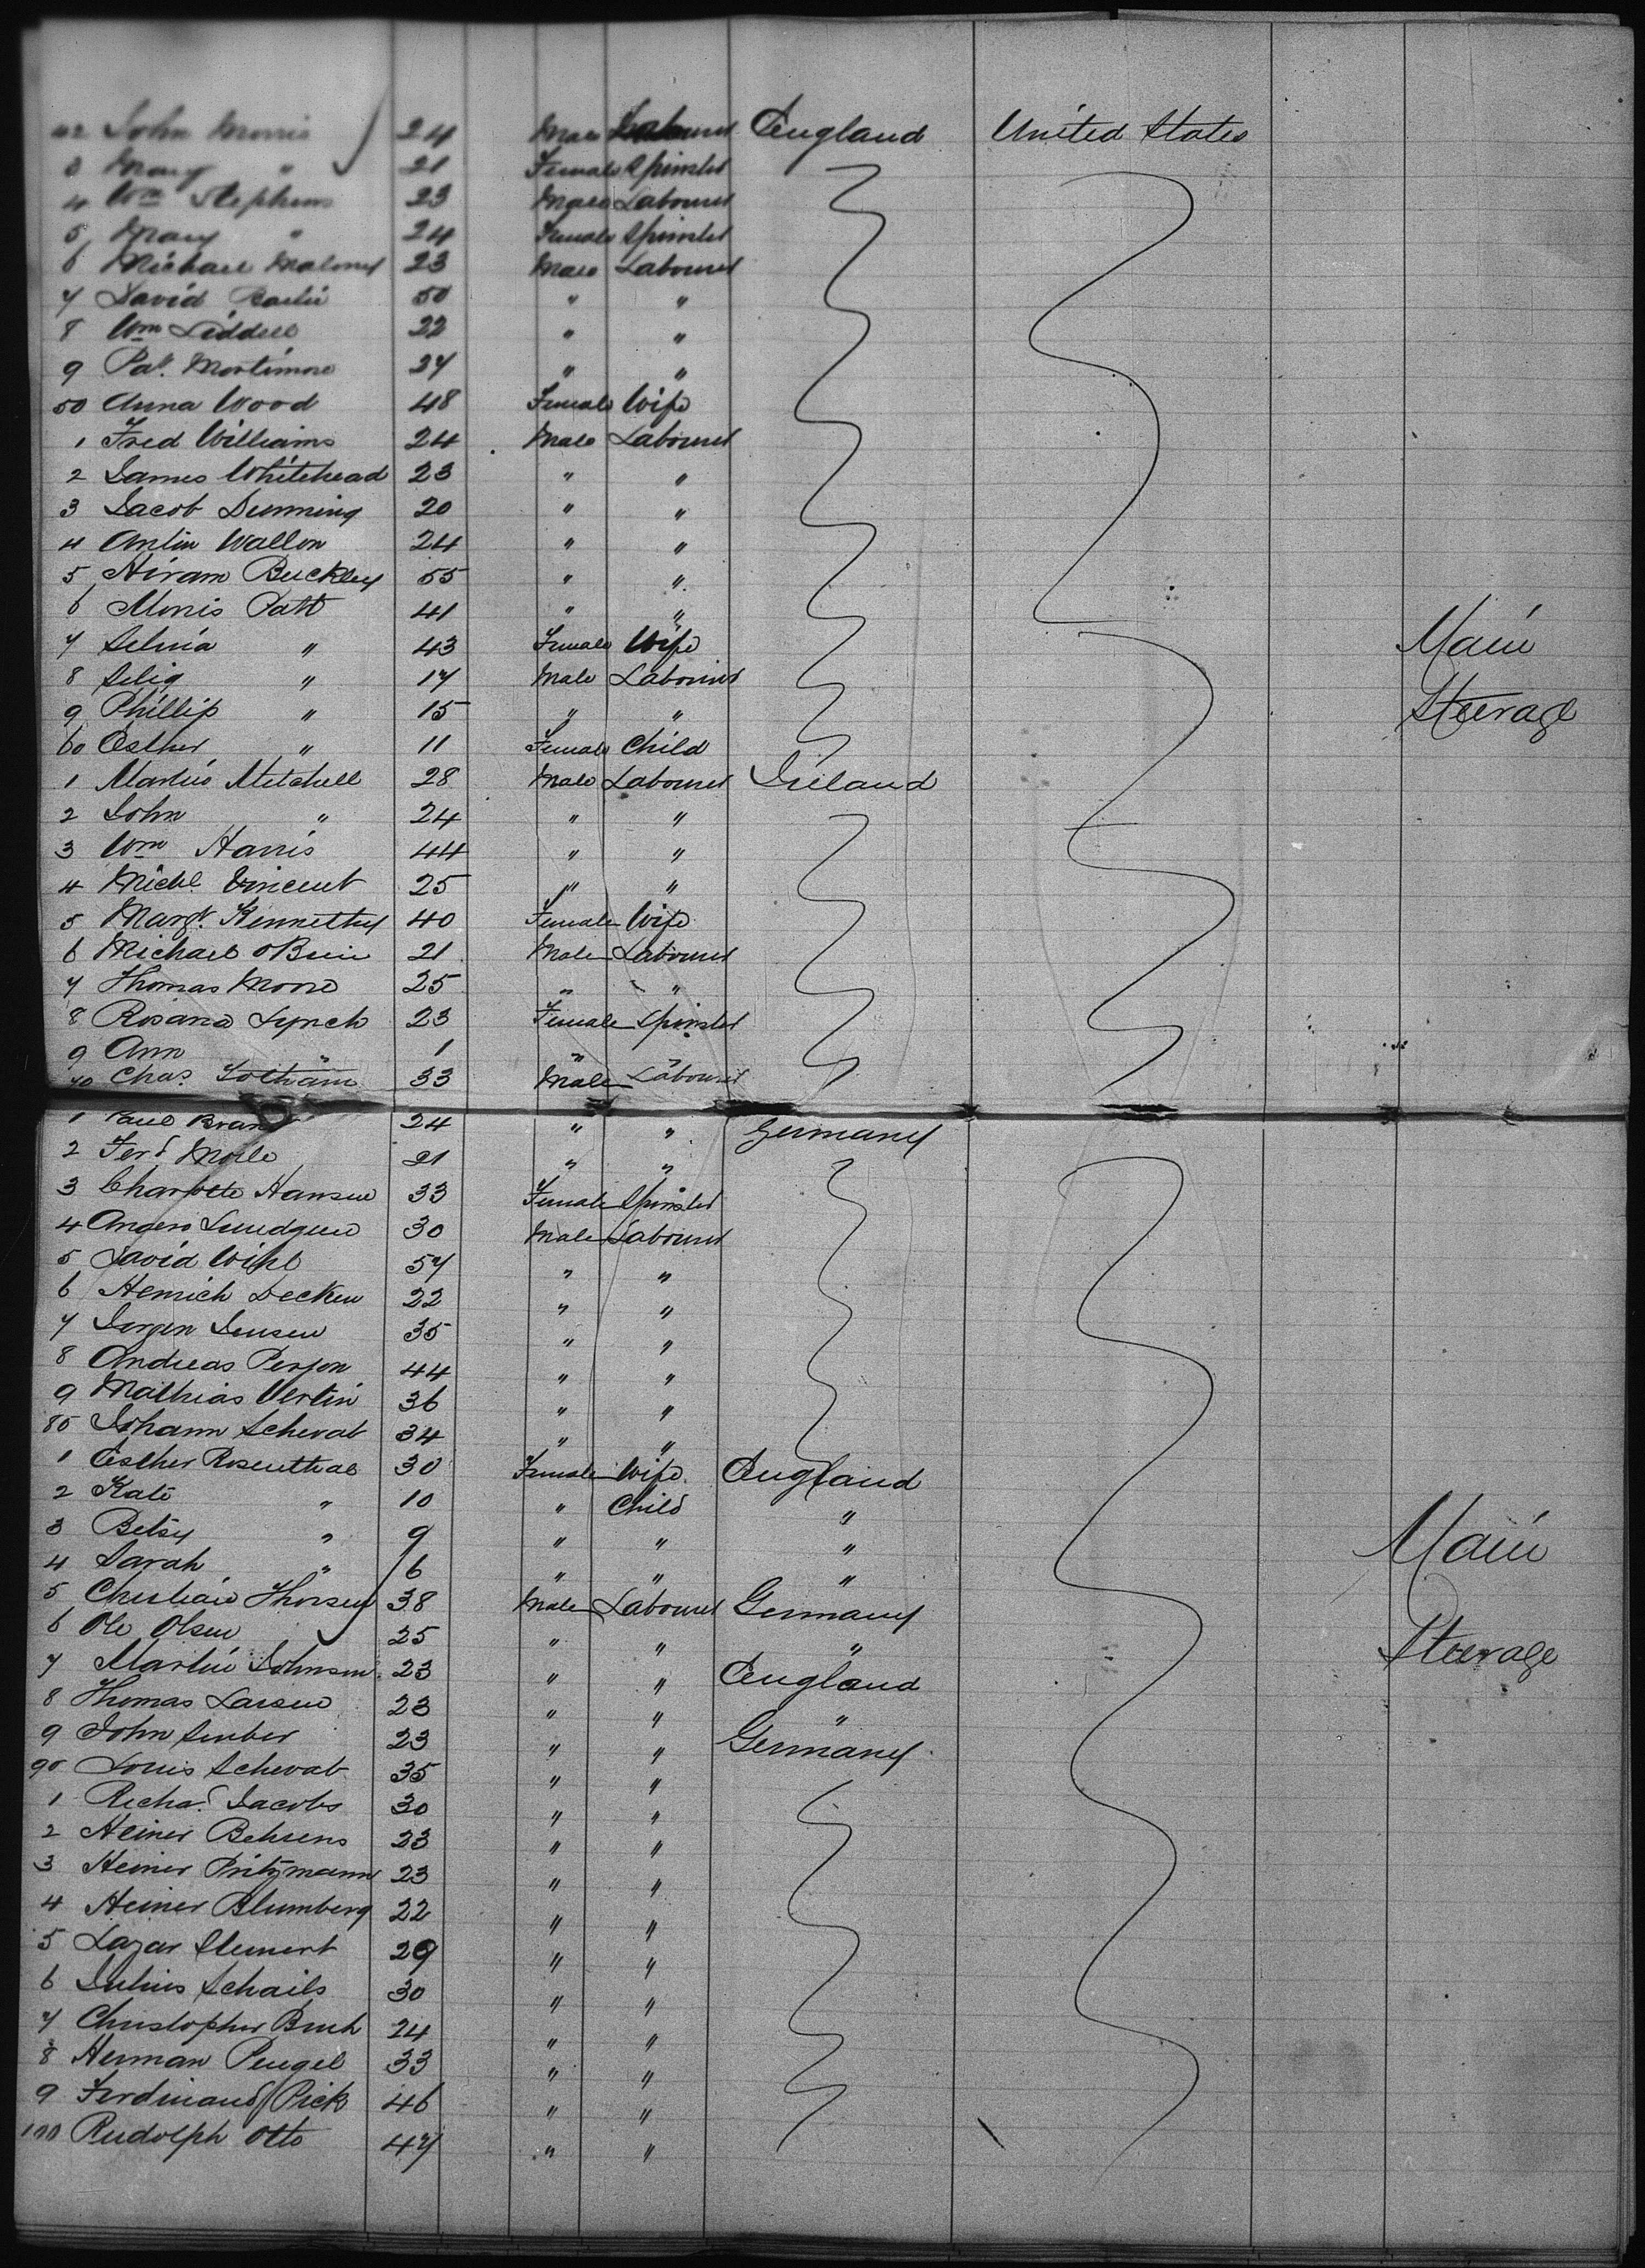 42 John Morris 24 Male Labourer England United States
3 Mary " 21 Female Spinster
4 Wm Stephens 23 Male Labourer
5 Mary " 24 Female Spinster
6 Michael Maloney 23 Male Labourer
7 David 50 " "
8 Wm Liddell 22 " "
9 Patk Mortimore 27 " "
50 Anna Wood 48 Female Wife
1 Fred Williams 24 Male Labourer
2 James Whitehead 23 " "
3 Jacob Dunning 20 " "
4 Wallon 24 " "
5 Hiram Buckley 55 " "
6 Morris Patt 41 " "
7 Selina " 43 Female Wife Main
8 Selig " 17 Male Labourer
9 Phillip " 15 " " Steerage
60 Esther " 11 Female Child
1 Martin Mitchell 28 Male Labourer Ireland
2 John " 24 " "
3 Wm Harris 44 " "
4 Michl Vincent 25 " "
5 Margt 40 Female Wife
6 Michael 21 Male Labourer
7 Thomas Moore 25 " "
8 Rosana Lynch 23 Female Spinster
9 Ann " 1 " "
70 Chas. 33 Male Labourer
1 Paul Brand 24 " " Germany
2 Ferd 21 " "
3 Charlotte Hansen 33 Female Spinster
4 Anders Lundgren 30 Male Labourer
5 David 57 " "
6 Henrich Decken 22 " "
7 Jorgen Jensen 35 " "
8 Andreas Person 44 " "
9 Mathias Vertin 36 " "
80 Johann Schwab 34 " "
1 Esther Rosenthal 30 Female Wife England
2 Kate " 10 " Child "
3 Betsy " 9 " " " Main
4 Sarah " 6 " " "
5 Christian Thorsen 38 Male Labourer Germany
6 Ole Olsen 25 " " " Steerage
7 Martin Johnson 23 " " England
8 Thomas Larsen 23 " " "
9 John 23 " " Germany
90 Louis Schwab 35 " "
1 Richd Jacobs 30 " "
2 Heiner Behrens 23 " "
3 Heiner Pritzmann 23 " "
4 Heiner Blumberg 22 " "
5 Lazar 29 " "
6 Julius Schails 30 " "
7 Christopher Bruch 24 " "
8 Herman Pengel 33 " "
9 Ferdinand Pick 46 " "
100 Rudolph Otto 47 " "